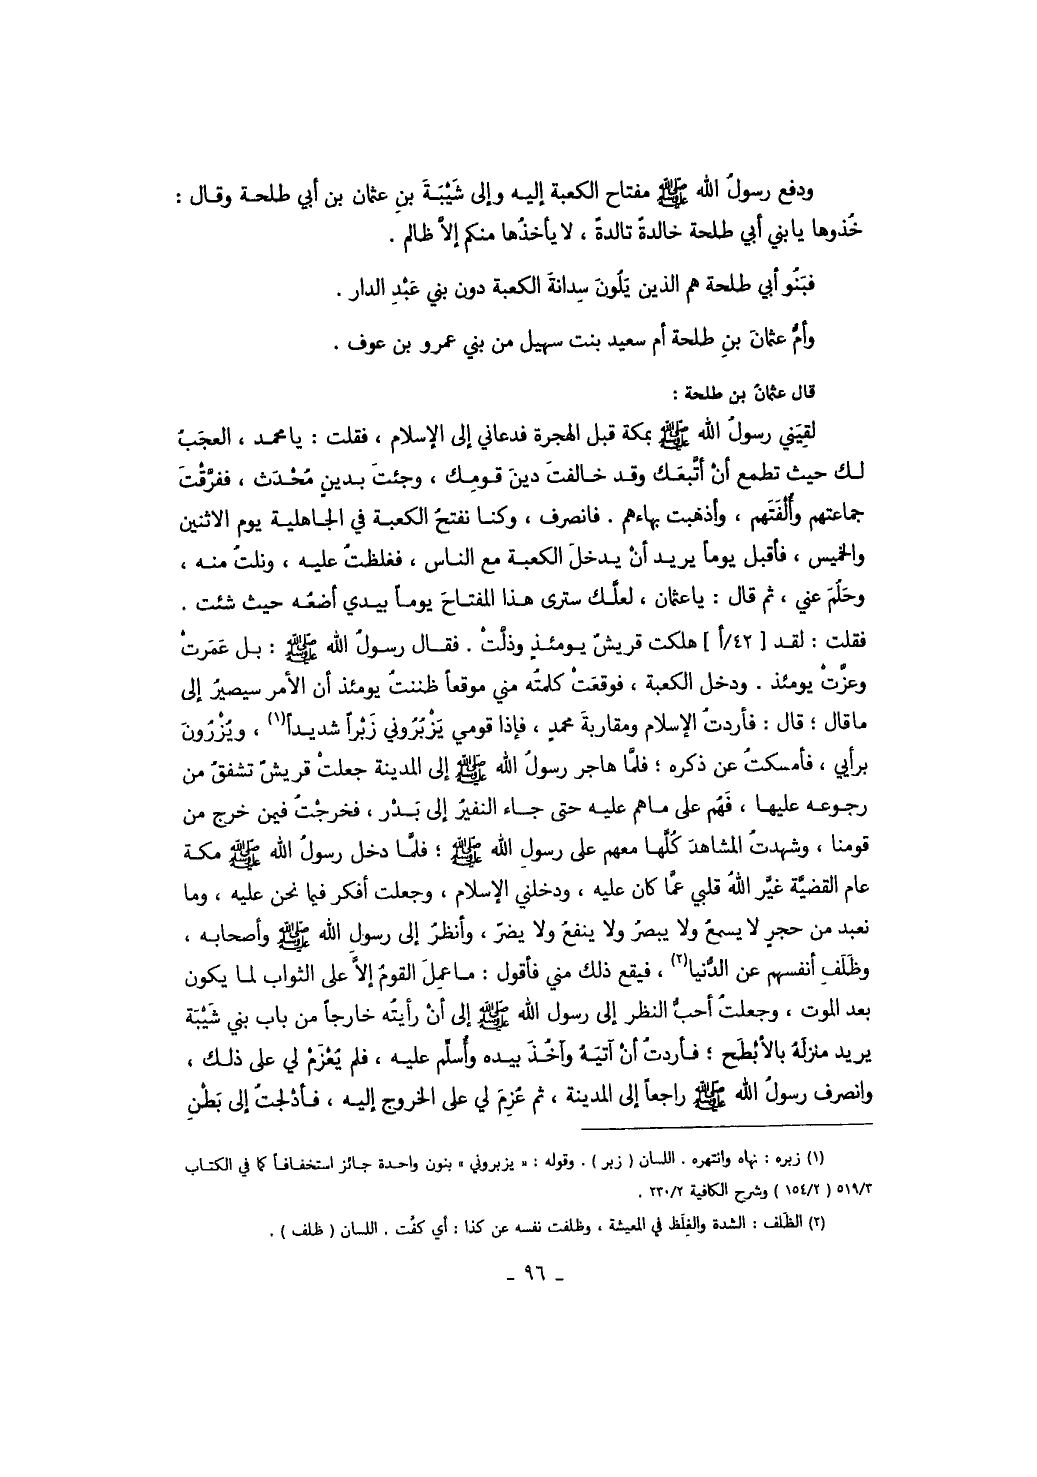 ودفع رسولُ الله ﷺ مفتاح الكعبة إليه وإلى شَيْبَةَ بنِ عثمان بن أبي طلحة وقال :
خُذوها يابني أبي طلحة خالدةً تالدةً ، لا يأخذُها منكم إلاَّ ظالم .
فبَنُو أبي طلحة هم الذين يَلُونَ سِدانةَ الكعبة دون بني عَبْدِ الدار .
وأمُّ عثمانَ بنِ طلحة أم سعيد بنت سهيل من بني عمرو بن عوف .
قال عثمانُ بن طلحة :
لقِيَني رسولُ الله ﷺ بمكة قبل الهجرة فدعاني إلى الإسلام ، فقلت : يامحمد ، العجَبُ
لك حيث تطمع أنْ أتَّبعَك وقد خالفتَ دينَ قومِك ، وجئتَ بدينٍ مُحْدَث ، ففرَّقْتَ
جماعتهم وأُلْفَتَهم ، وأذهبت بهاءهم . فانصرف ، وكنا نفتحُ الكعبة في الجاهلية يوم الاثنين
والخميس ، فأقبل يوماً يريد أنْ يدخلَ الكعبة مع الناس ، فغلظتُ عليه ، ونلتُ منه ،
وحَلُمَ عني ، ثم قال : ياعثمان ، لعلَّك سترى هذا المفتاحَ يوماً بيدي أضعُه حيث شئت .
فقلت : لقد [ ٤٢/أ ] هلكت قريشٌ يومئذٍ وذلَّتْ . فقال رسولُ الله ﷺ : بل عَمَرتْ
وعزَّتْ يومئذ . ودخل الكعبة ، فوقعَتْ كلمتُه مني موقعاً ظننتُ يومئذ أن الأمر سيصيرُ إلى
ماقال ؛ قال : فأردتُ الإسلام ومقاربةَ محمدٍ ، فإذا قومي يَزْبُرُوني زَبْراً شديداً(١) ، ويُزْرُونَ
برأيي ، فأمسكتُ عن ذكره ؛ فلمَّا هاجر رسولُ الله ﷺ إلى المدينة جعلتْ قريشٌ تشفقُ من
رجوعه عليها ، فَهُم على ماهم عليه حتى جاء النفيرُ إلى بَدْر ، فخرجْتُ فيمن خرج من
قومنا ، وشهدتُ المشاهدَ كُلَّها معهم على رسولِ الله ﷺ ؛ فلمَّا دخل رسولُ الله ﷺ مكة
عام القضيَّة غيَّر اللهُ قلبي عمَّا كان عليه ، ودخلني الإسلام ، وجعلت أفكر فيما نحن عليه ، وما
نعبد من حجرٍ لا يسمعُ ولا يبصرُ ولا ينفعُ ولا يضرّ ، وأنظرُ إلى رسولِ الله ﷺ وأصحابه ،
وظَلَفِ أنفسهم عن الدُّنيا(٢) ، فيقع ذلك مني فأقول : ماعمِلَ القومُ إلاَّ على الثواب لما يكون
بعد الموت ، وجعلتُ أحبُّ النظر إلى رسول الله ﷺ إلى أنْ رأيتُه خارجاً من باب بني شَيْبَة
يريد منزلَهُ بالأَبْطَح ؛ فأردتُ أنْ آتيَهُ وآخُذَ بيده وأُسلِّم عليه ، فلم يُعْزَمْ لي على ذلك ،
وانصرف رسولُ الله ﷺ راجعاً إلى المدينة ، ثم عُزِمَ لي على الخروج إليه ، فأدْلجتُ إلى بَطْنِ
(١) زبره : نهاه وانتهره . اللسان ( زبر ) . وقوله : « يزبروني » بنون واحدة جائز استخفافاً كما في الكتاب
٥١٩/٣ ( ١٥٤/٢ ) وشرح الكافية ٢٣٠/٢ .
(٢) الظَلف : الشدة والغِلَظ في المعيشة ، وظلفت نفسه عن كذا : أي كفّت . اللسان ( ظلف ) .
- ٩٦ -